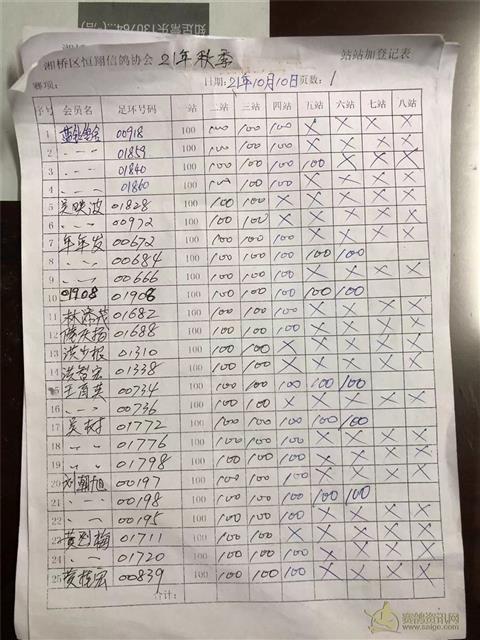 湘桥区恒翔信鸽协会 21年秋季 站站加登记表
赛项: 日期:21年10月10日 页数:1
序号 会员名 足环号码 一站 二站 三站 四站 五站 六站 七站 八站
1 00918 100 100 100 100 X X X X
2 〃 01859 100 100 100 100 X X X X
3 〃 01840 100 100 100 100 100 X X X
4 〃 01860 100 100 100 100 X X X X
5 吴映波 01828 100 100 100 X X X X X
6 〃 00972 100 100 100 X X X X X
7 年年发 00672 100 100 100 100 X X X X
8 〃 00684 100 100 100 100 100 100
9 〃 00666 100 100 100 100 X X X X
10 01908 01908 100 100 100 100 100 100
11 01682 100 100 100 100 X X X X
12 01688 100 100 100 100 X X X X
13 洪少报 01310 100 100 100 X X X X X
14 洪智宏 01338 100 100 100 100 X X X X
15 00734 100 100 100 100 100 100
16 〃 00736 100 100 100 X X X X X
17 吴树 01772 100 100 100 100 100 100
18 〃 01776 100 100 100 100 X X X X
19 〃 01798 100 100 100 100 X X X X
20 刘朝旭 00197 100 100 100 X X X X X
21 〃 00198 100 100 100 100 100 100
22 〃 00195 100 100 100 100 X X X X
23 黄列梅 01711 100 100 100 X X X X X
24 〃 01720 100 100 100 100 X X X X
25 00839 100 100 100 100 X X X X
合计:
赛鸽资讯网
www.saige.com